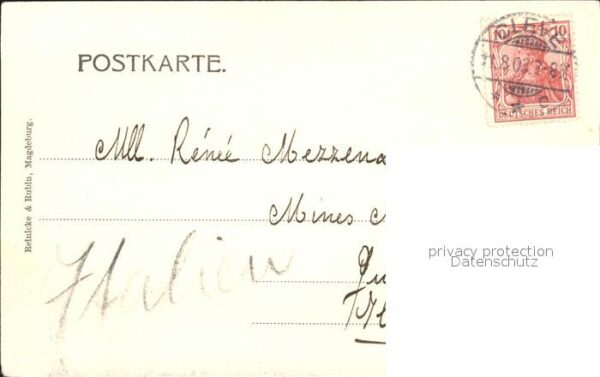 CLEVE
10 10
DEUTSCHES REICH
POSTKARTE.
Reinicke & Rubin, Magdeburg.
Mll. Rénée Mezzena
Mines
Italien
privacy protection
Datenschutz